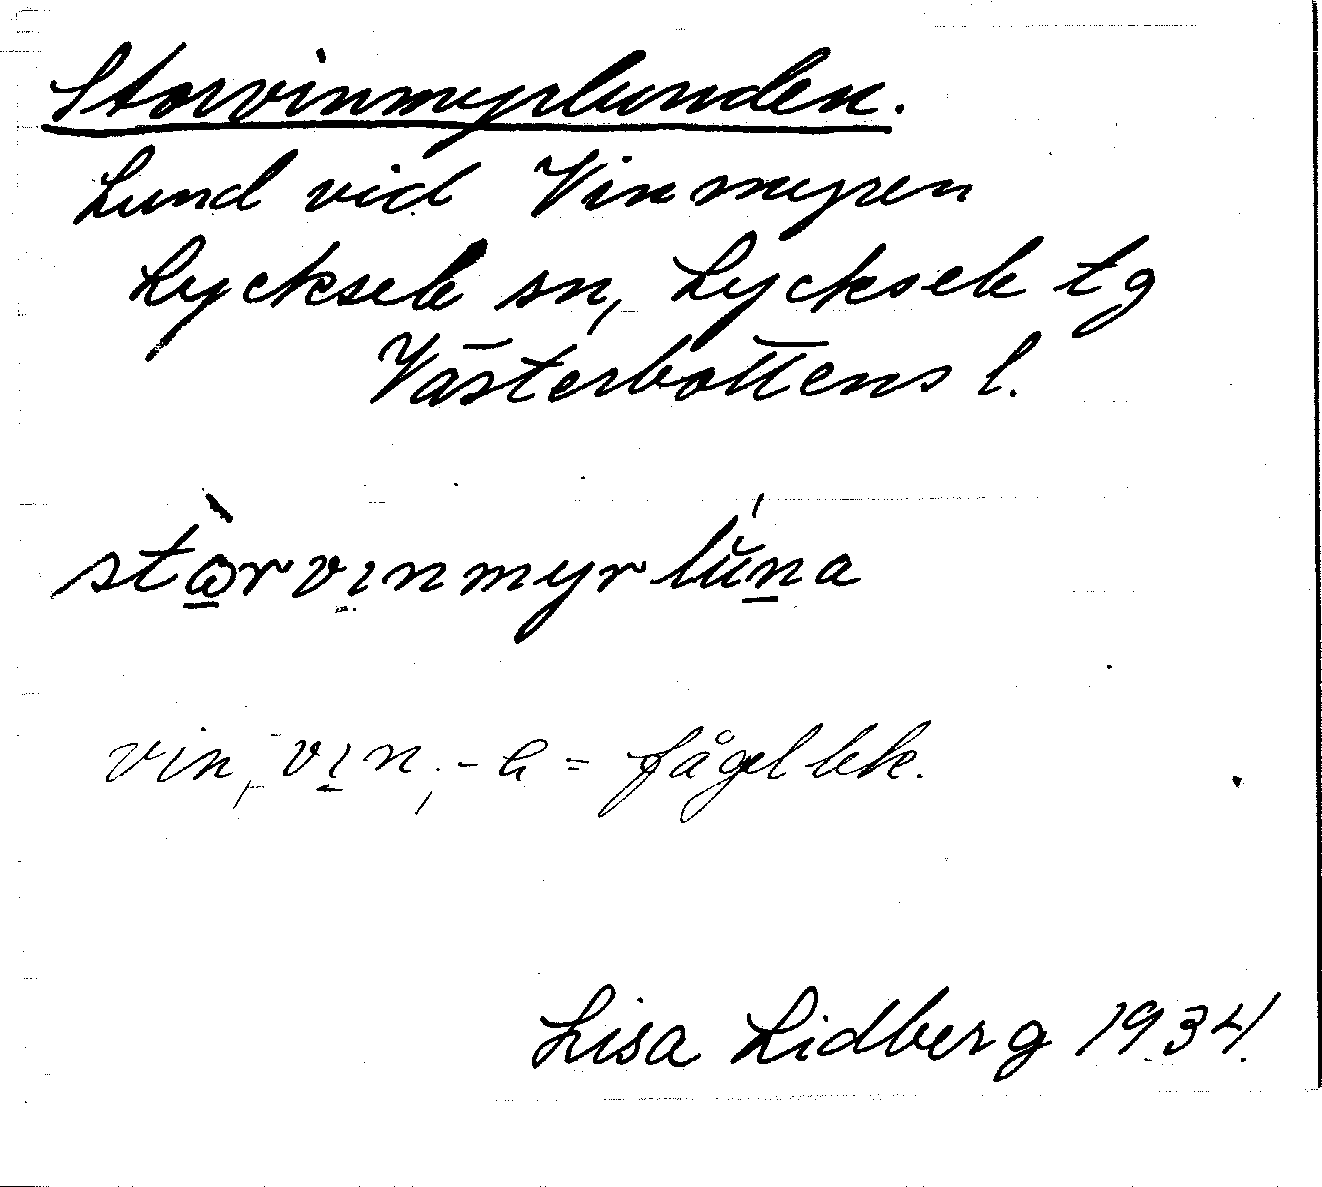 Storvinmyrlunden.
Lund vid Vinmyren
Lycksele sn, Lycksele tg
Västerbottens l.
stòrvınmyrlŭ́na
vin, vın, -a = fågellek.
Lisa Lidberg 1934.